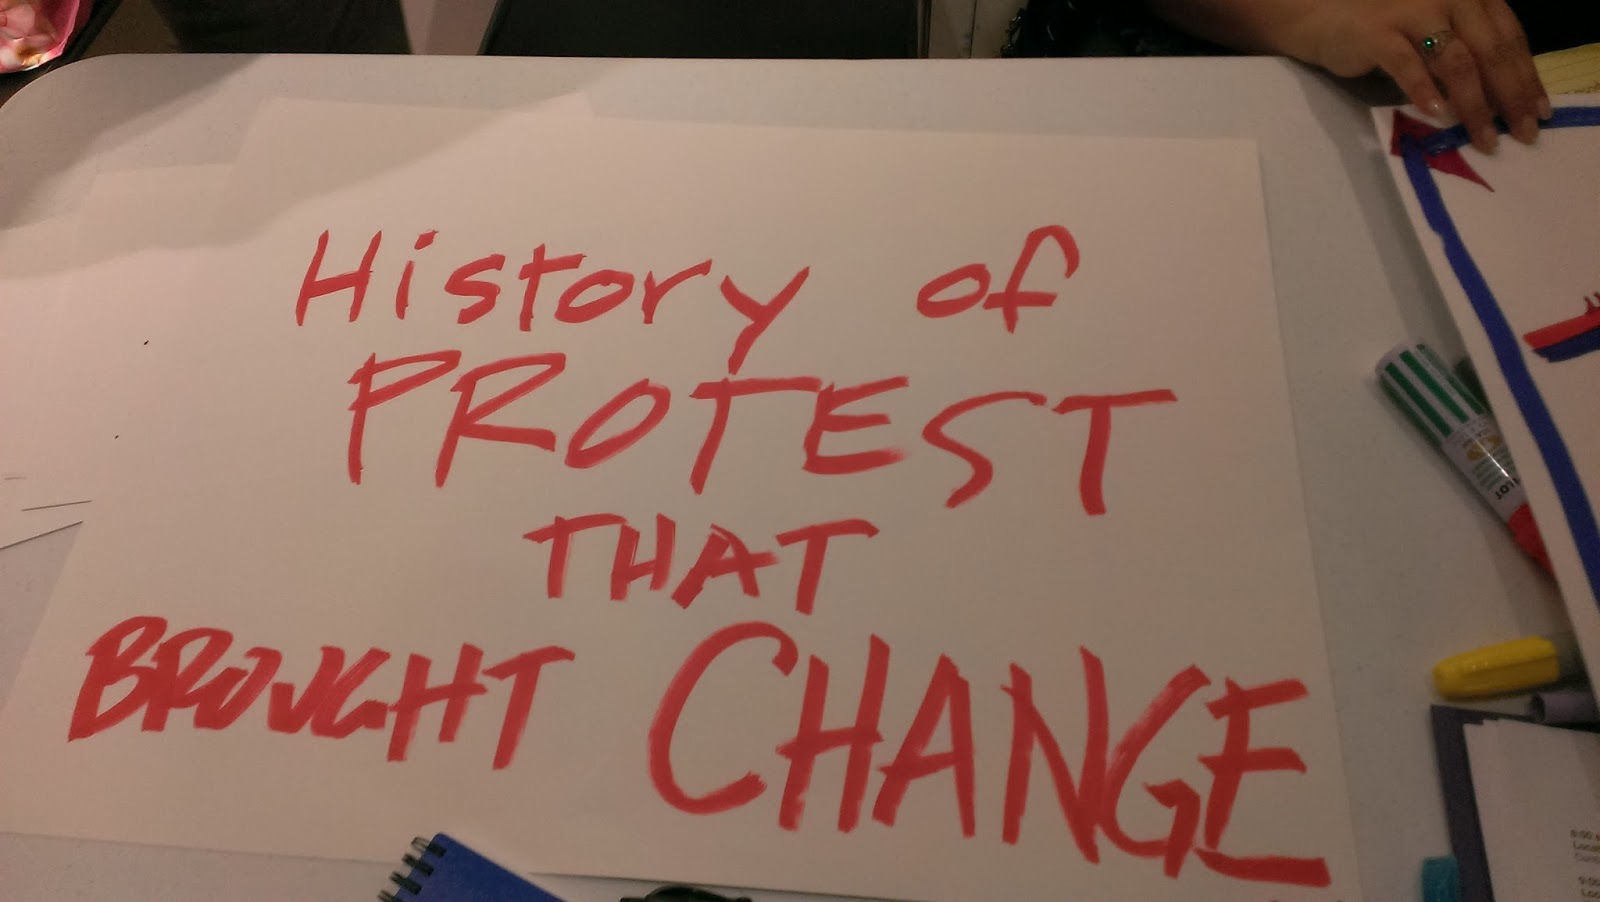 History of
PROTEST
THAT
BROUGHT CHANGE